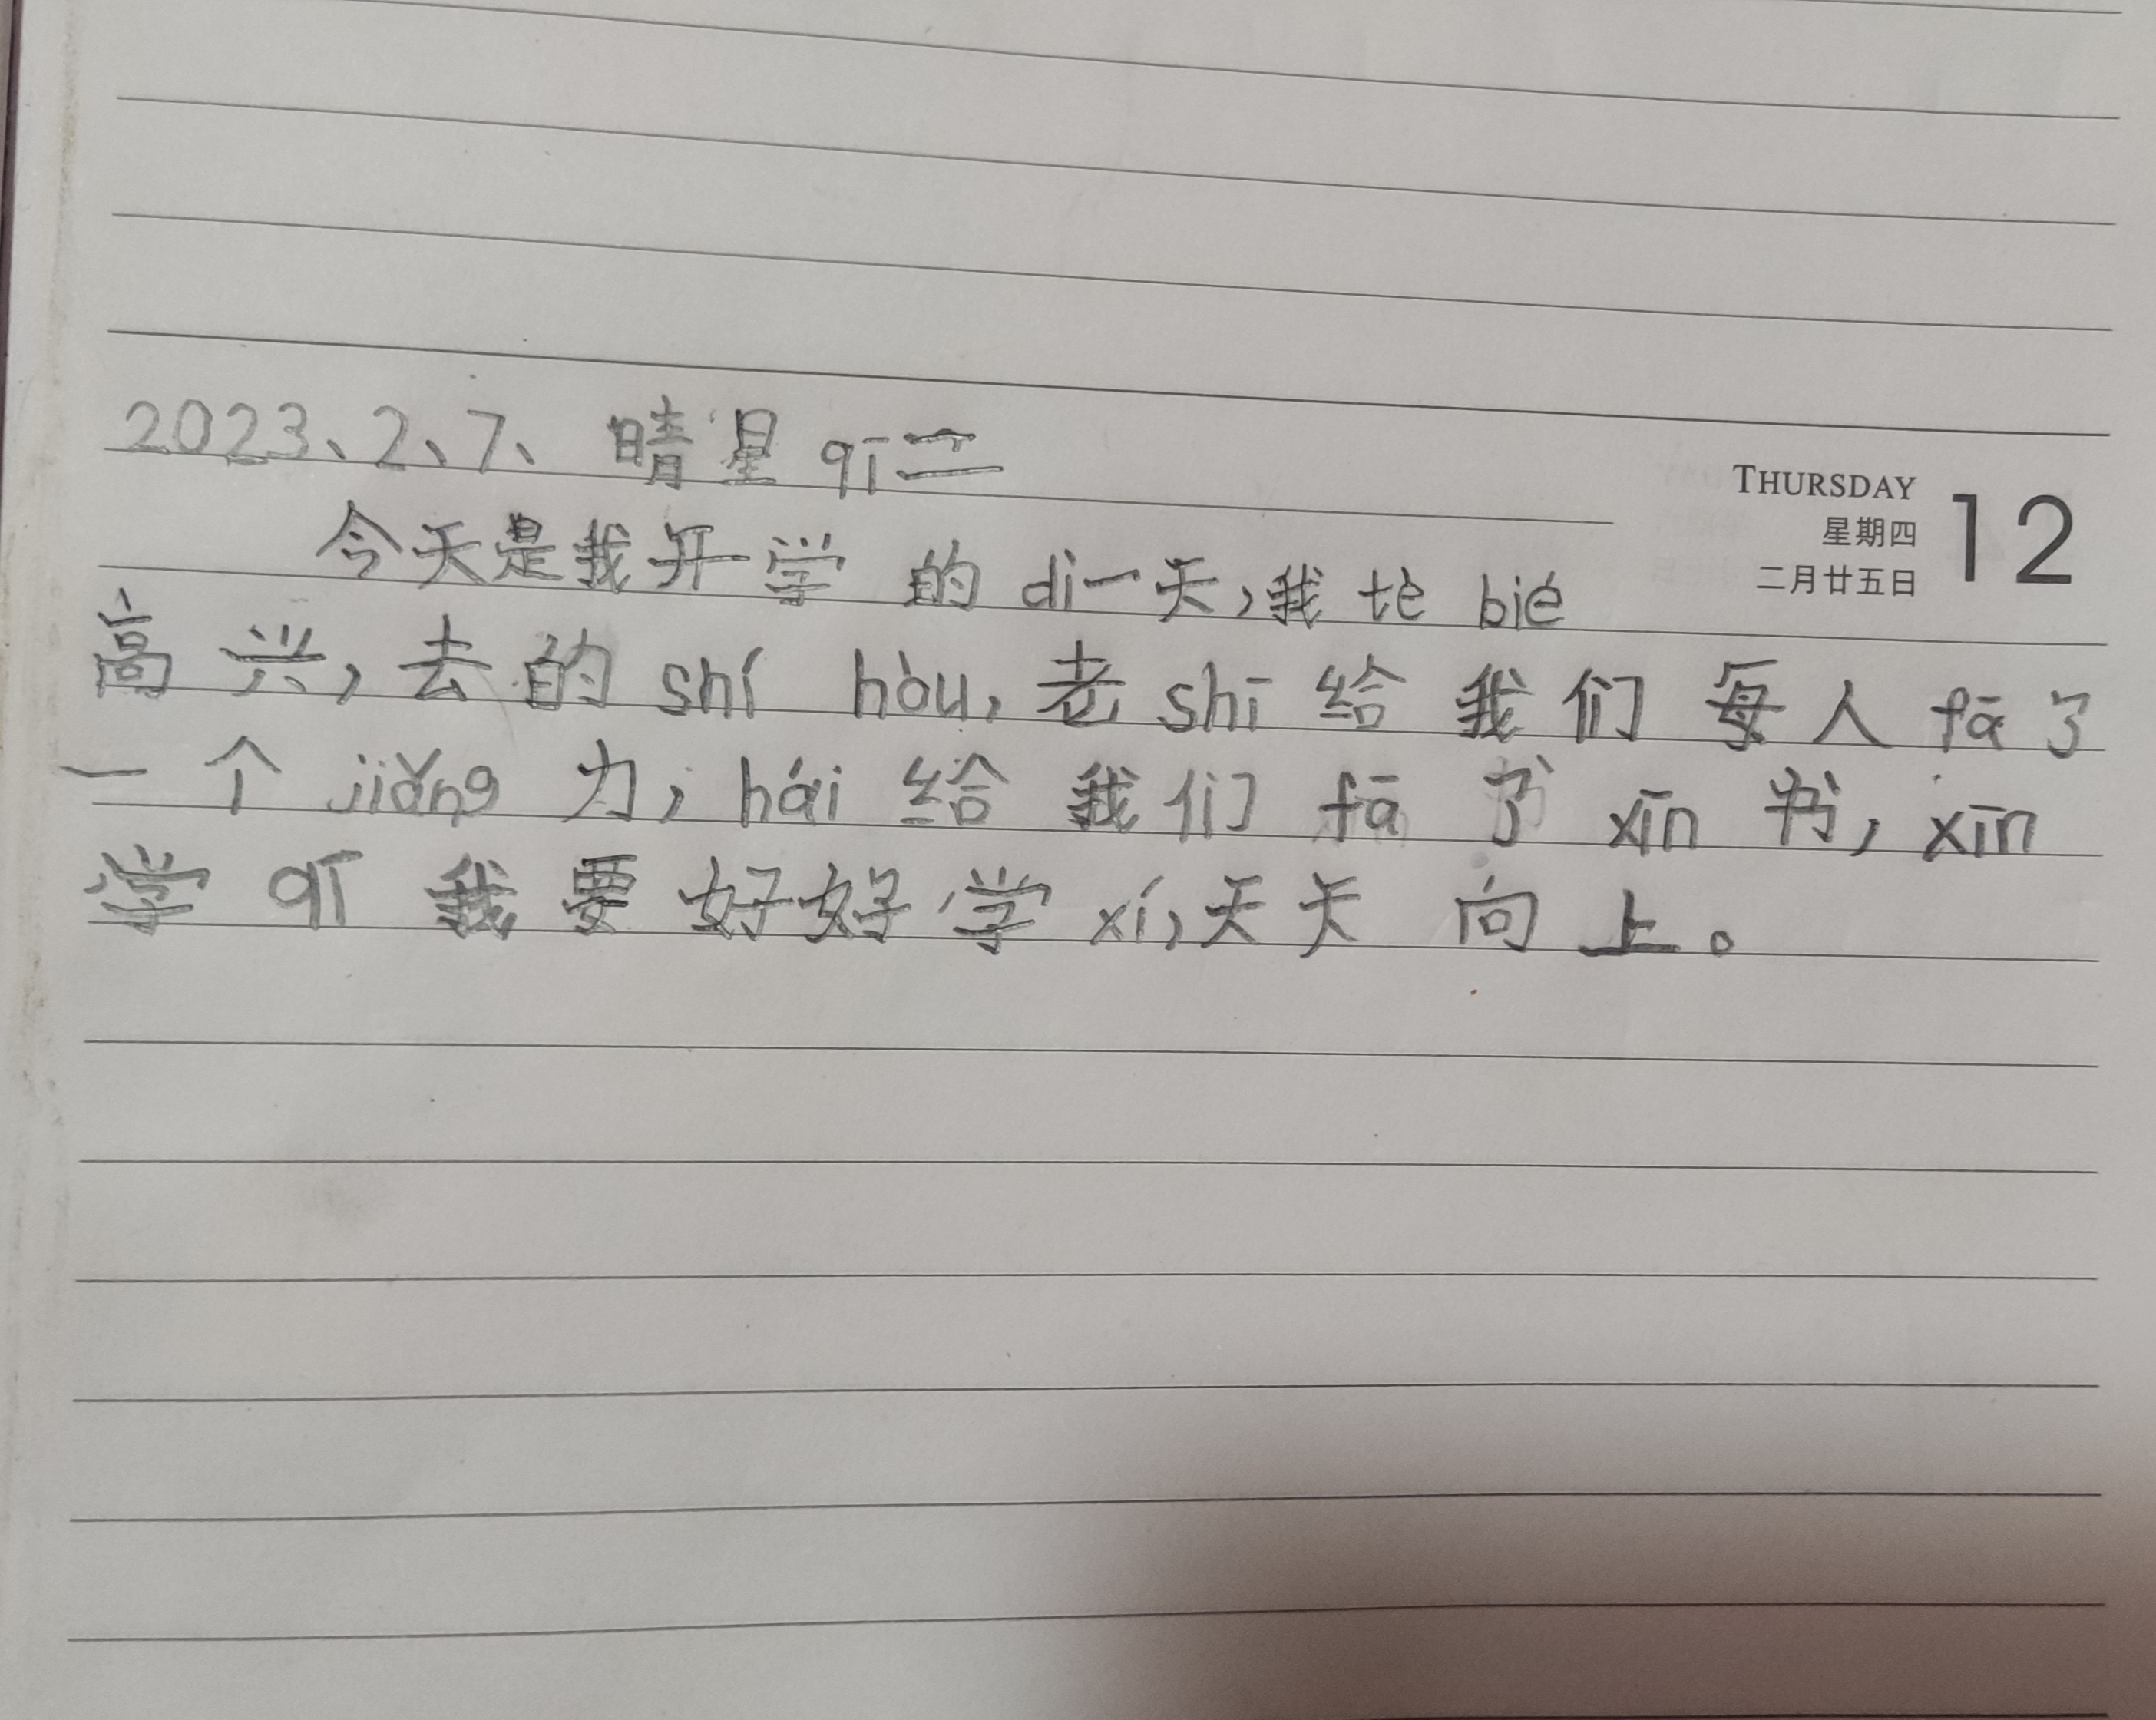 2023、2、7、 晴 星 qī 二
THURSDAY
星期四
二月廿五日
12
今天是我开学 的 dì一天,我 tè bié
高 兴,去 的 shí hòu,老 shī 给 我 们 每 人 fā 了
一 个 jiǎng 力,hái 给 我 们 fā 了 xīn 书,xīn
学 qī 我 要 好好 学 xí,天天 向 上。